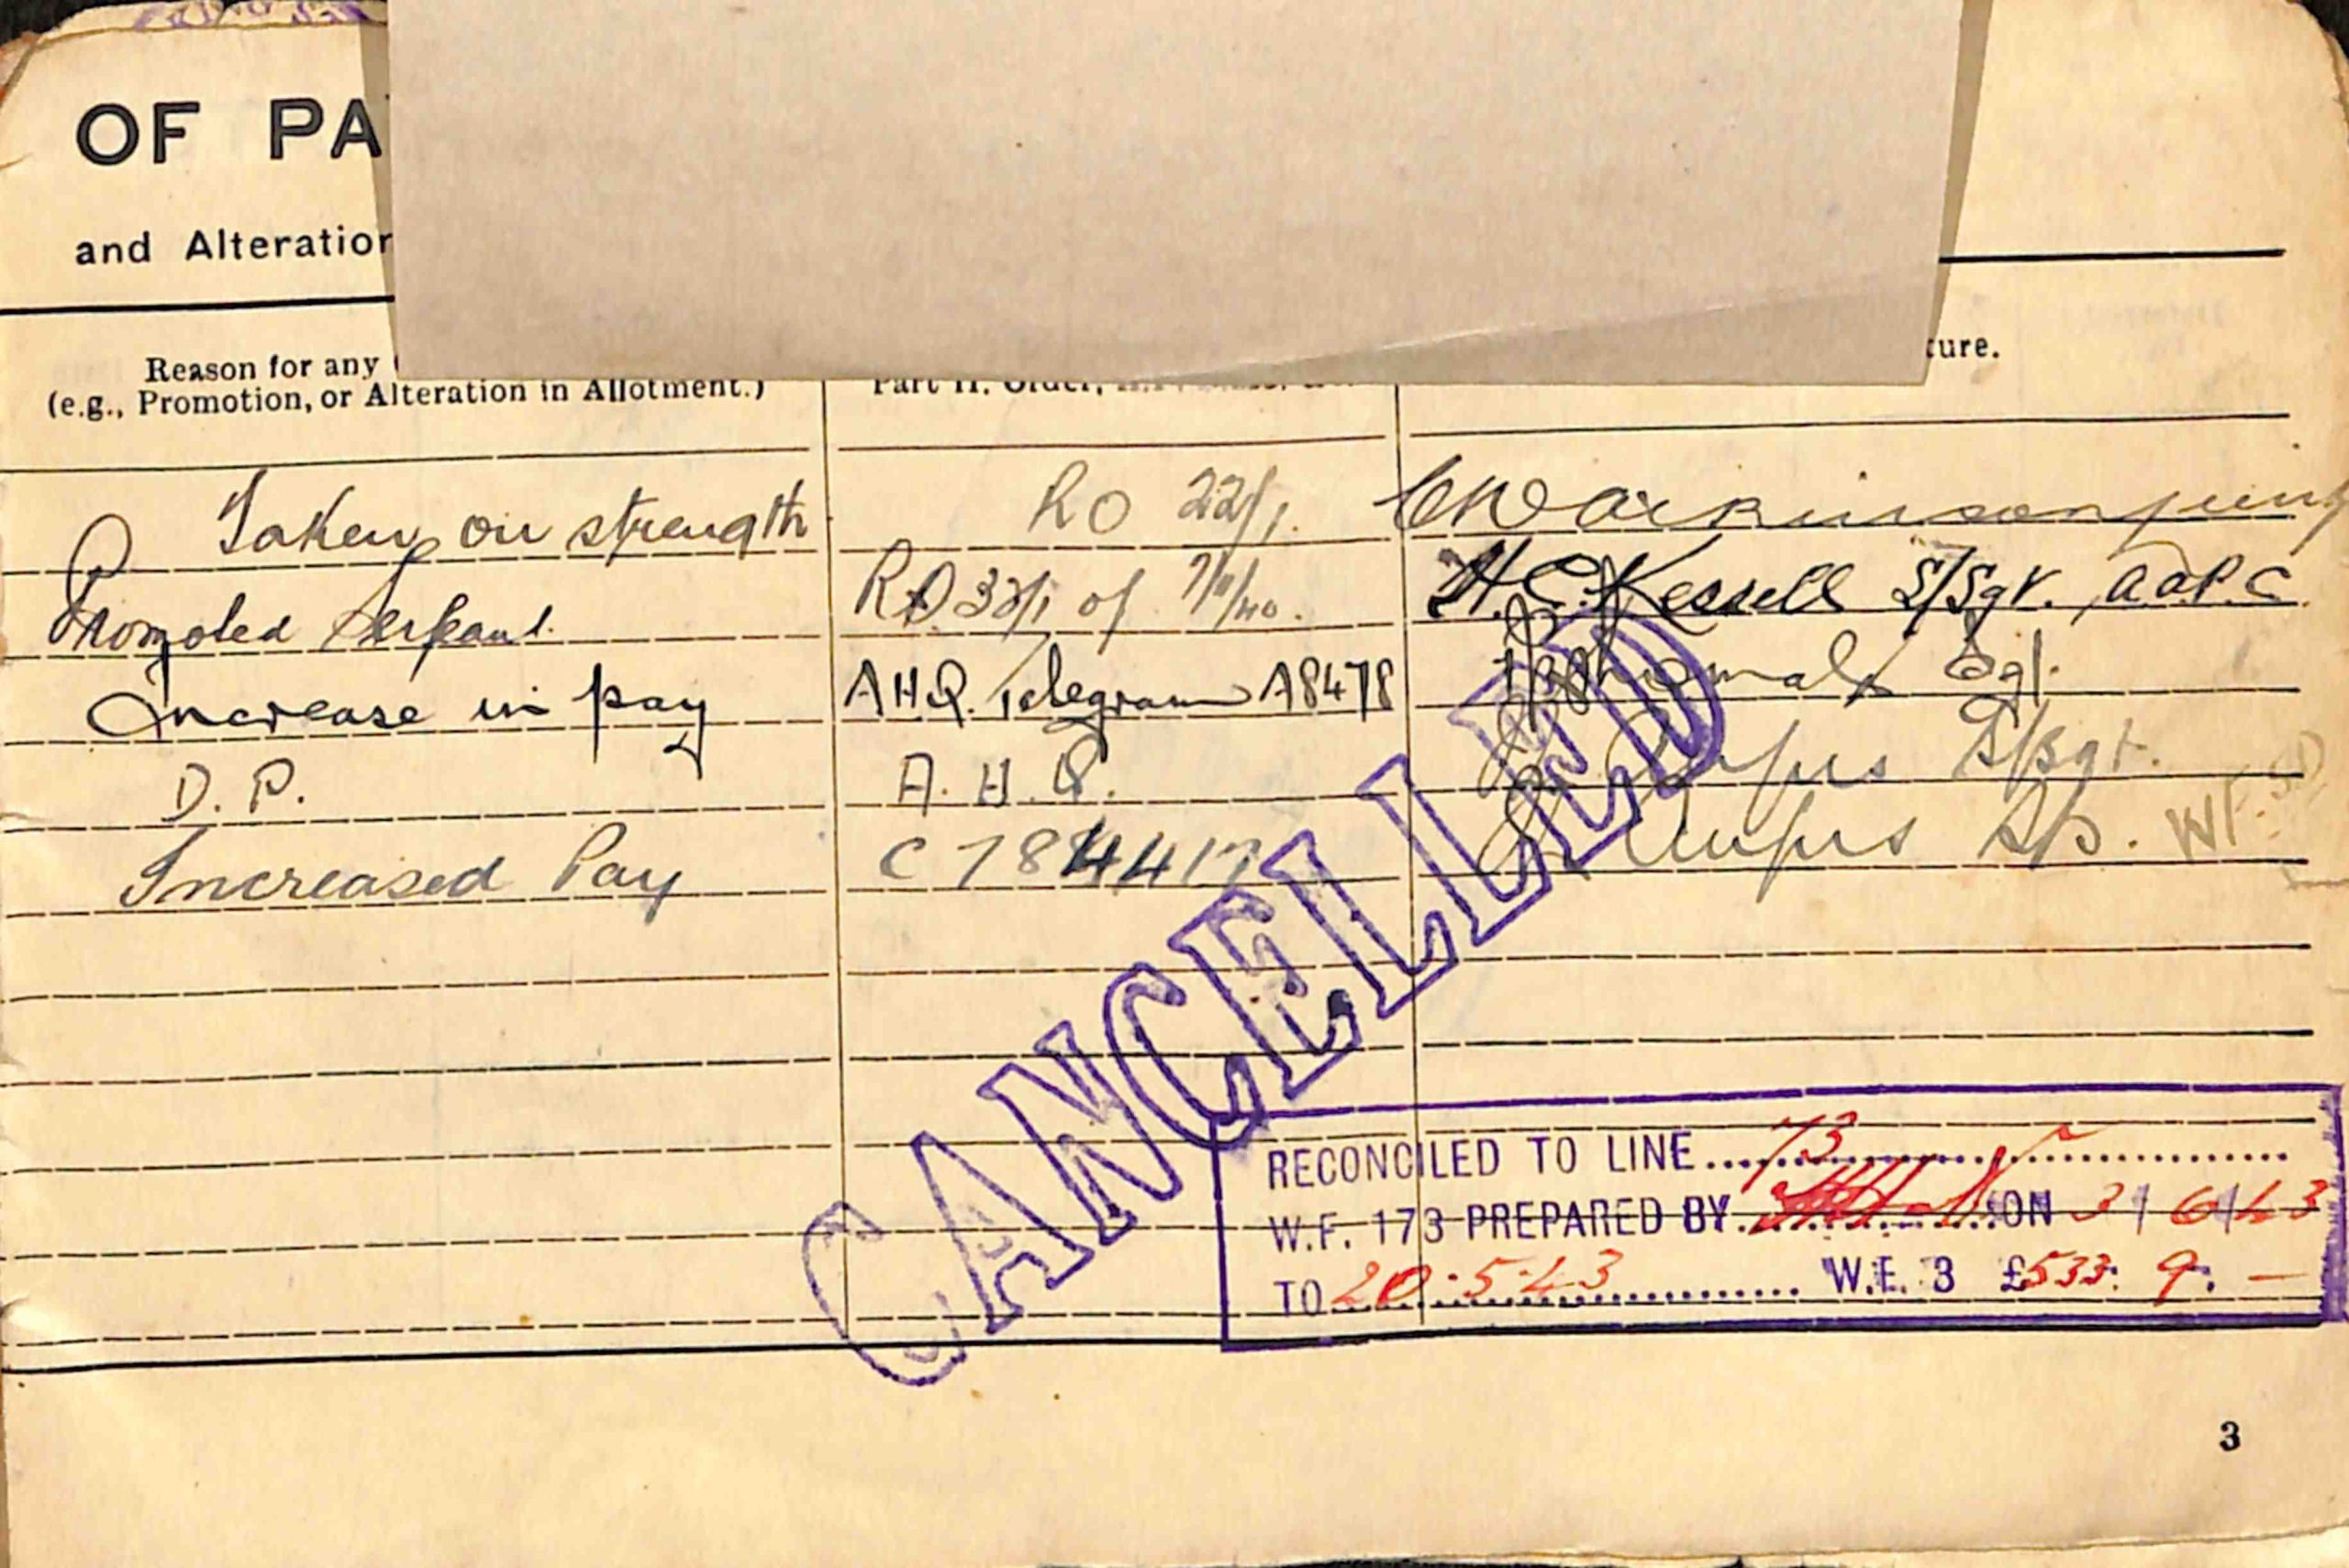 OF PA
and Alteration
Reason for any
ture.
(e.g., Promotion, or Alteration in Allotment.) Part II. Order,
Taken on strength RO 22/1.
Promoted Serjeant. RO 33/1 of 7/11/40. H.C. Kessell S/Sgt. AAPC
Increase in pay AHQ. Telegram A8478 Sgt.
D. P. A. H. Q. S/Sgt.
Increased Pay C 784417 WF.
CANCELLED
RECONCILED TO LINE 73
W.F. 173 PREPARED BY ON 3/6/43
TO 20.5.43 W.E. 3 £533: 9: —
3